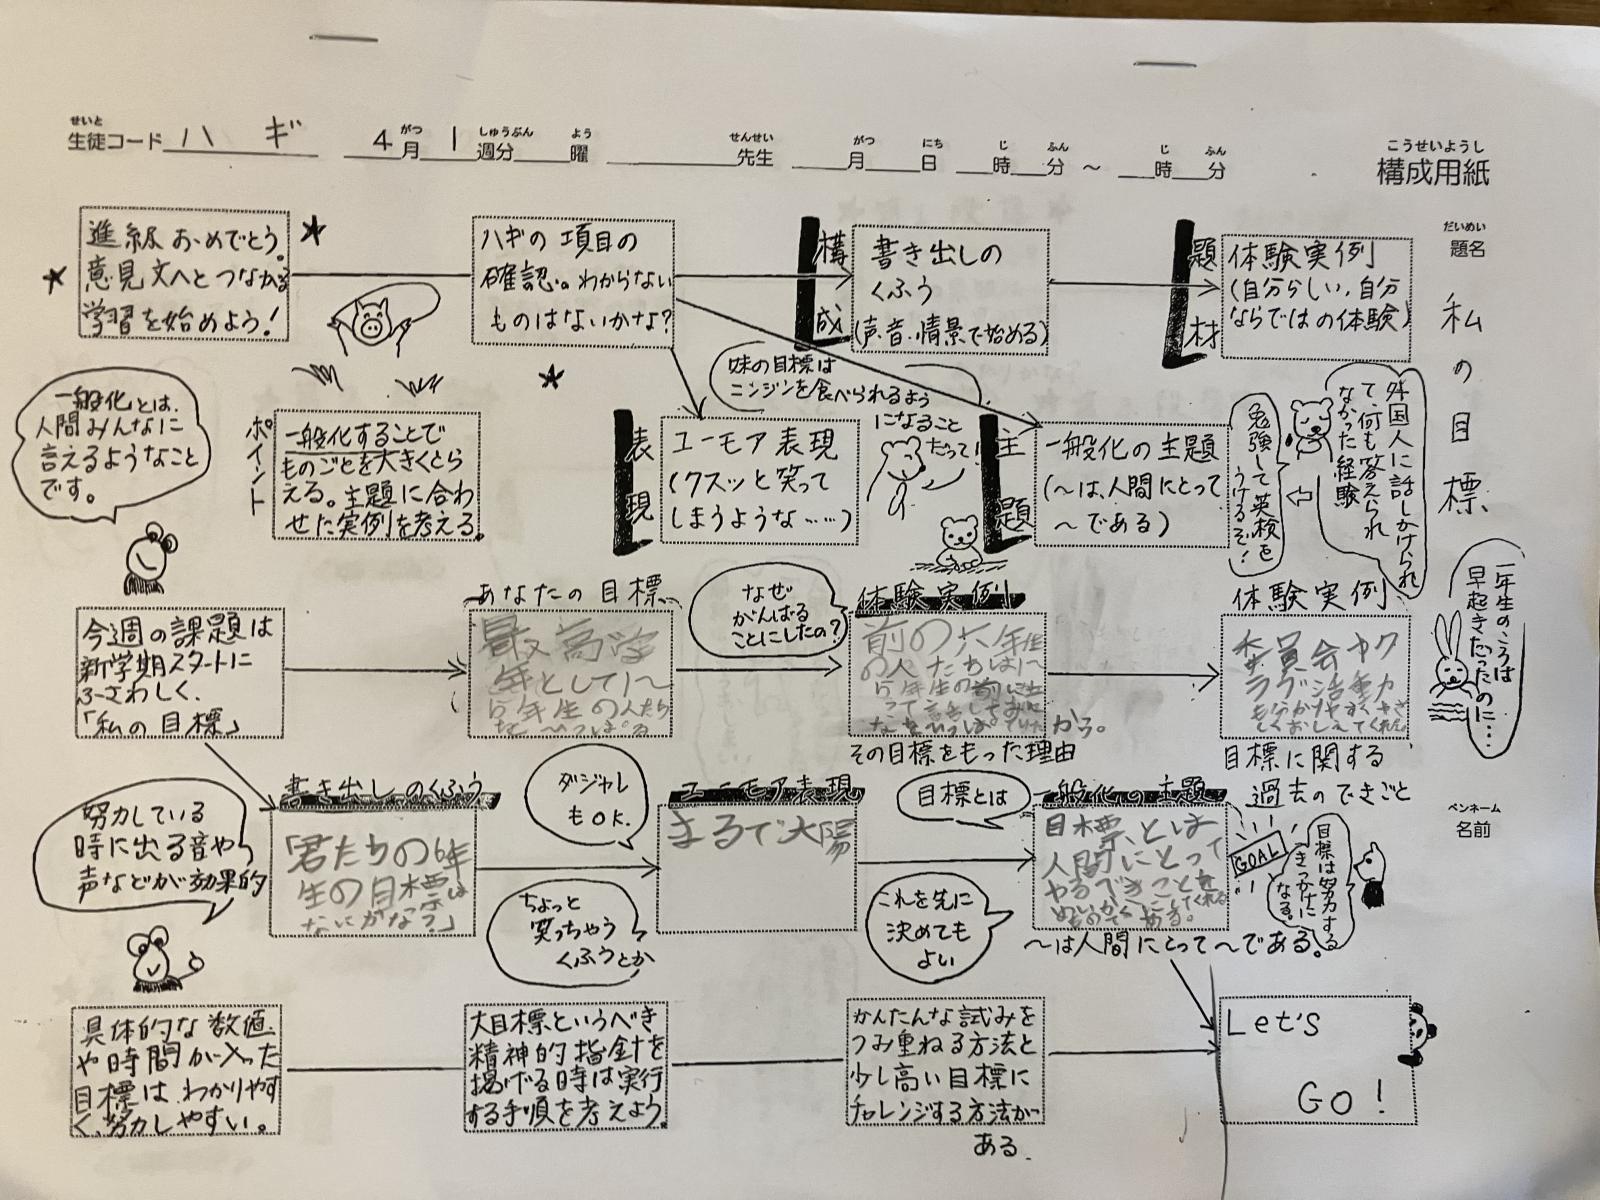 せいと
生徒コード ハギ 4月1週分 曜 先生 月 日 時 分 ～ 時 分
がつ しゅうぶん よう せんせい がつ にち じ ふん じ ふん
こうせいようし
構成用紙
だいめい
題名
私の目標
ペンネーム
名前
進級おめでとう。
意見文へとつなかる
学習を始めよう!
ハギの項目の
確認。わからない
ものはないかな?
構成
書き出しの
くふう
(声・音・情景で始める)
題材
体験実例
(自分らしい、自分
ならではの体験)
一般化とは、
人間みんなに
言えるようなこと
です。
ポイント
一般化することで
ものごとを大きくとら
える。主題に合わ
せた実例を考える。
表現
ユーモア表現
(クスッと笑って
しまうような……)
妹の目標は
ニンジンを食べられるよう
になること
だって!
主題
一般化の主題
(〜は、人間にとって
〜である)
外国人に話しかけられ
て、何も答えられ
なかった経験
勉強して英検を
うけるぞ!
一年生のころは
早起きだったのに…
今週の課題は
新学期スタートに
ふさわしく、
「私の目標」
あなたの目標
最高学
年として1〜
5年生の人たち
なぜ
がんばる
ことにしたの?
体験実例
前の六年生
の人たちは1〜
5年生の前に立
って
から。
その目標をもった理由
体験実例
委員会やク
ラブ活動
目標に関する
過去のできごと
努力している
時に出る音や
声などが効果的
書き出しのくふう
「君たちの6年
生の目標は
なにかな?」
ダジャレ
もOK.
ちょっと
笑っちゃう
くふうとか
ユーモア表現
まるで太陽
目標とは
これを先に
決めても
よい
一般化の主題
目標とは
人間にとって
やるべきことを
ある。
〜は人間にとって〜である。
GOAL
目標は努力する
きっかけに
なる。
具体的な数値
や時間が入った
目標はわかりやす
く、努力しやすい。
大目標というべき
精神的指針を
掲げる時は実行
する手順を考えよう。
かんたんな試みを
つみ重ねる方法と
少し高い目標に
チャレンジする方法が
ある.
Let's
GO!